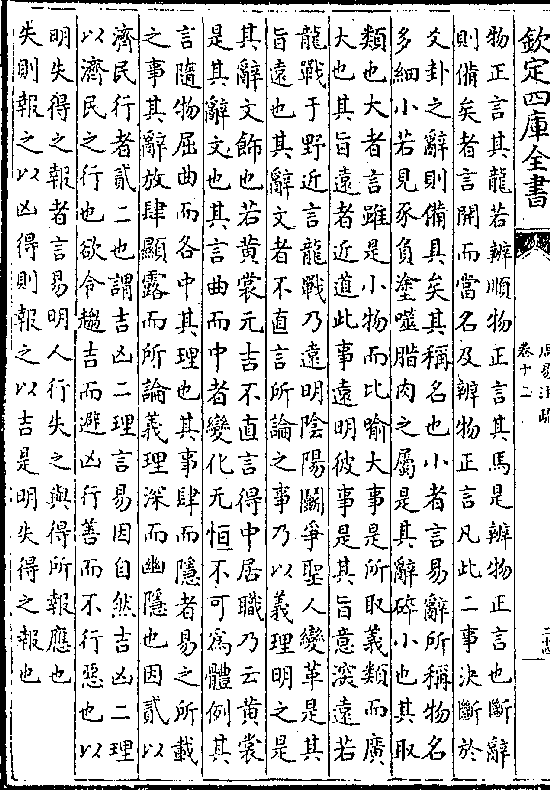 欽定四庫全書
周易注疏
卷十二
物正言其龍若辨順物正言其馬是辨物正言也斷辭
則備矣者言開而當名及辨物正言凡此二事決斷於
爻卦之辭則備具矣其稱名也小者言易辭所稱物名
多細小若見豕負塗噬腊肉之屬是其辭碎小也其取
類也大者言雖是小物而比喻大事是所取義類而廣
大也其旨遠者近道此事遠明彼事是其旨意深遠若
龍戰于野近言龍戰乃遠明陰陽鬭爭聖人變革是其
旨遠也其辭文者不直言所論之事乃以義理明之是
其辭文飾也若黄裳元吉不直言得中居職乃云黄裳
是其辭文也其言曲而中者變化无恒不可爲體例其
言隨物屈曲而各中其理也其事肆而隱者易之所載
之事其辭放肆顯露而所論義理深而幽隱也因貳以
濟民行者貳二也謂吉凶二理言易因自然吉凶二理
以濟民之行也欲令趨吉而避凶行善而不行惡也以
明失得之報者言易明人行失之與得所報應也
失則報之以凶得則報之以吉是明失得之報也